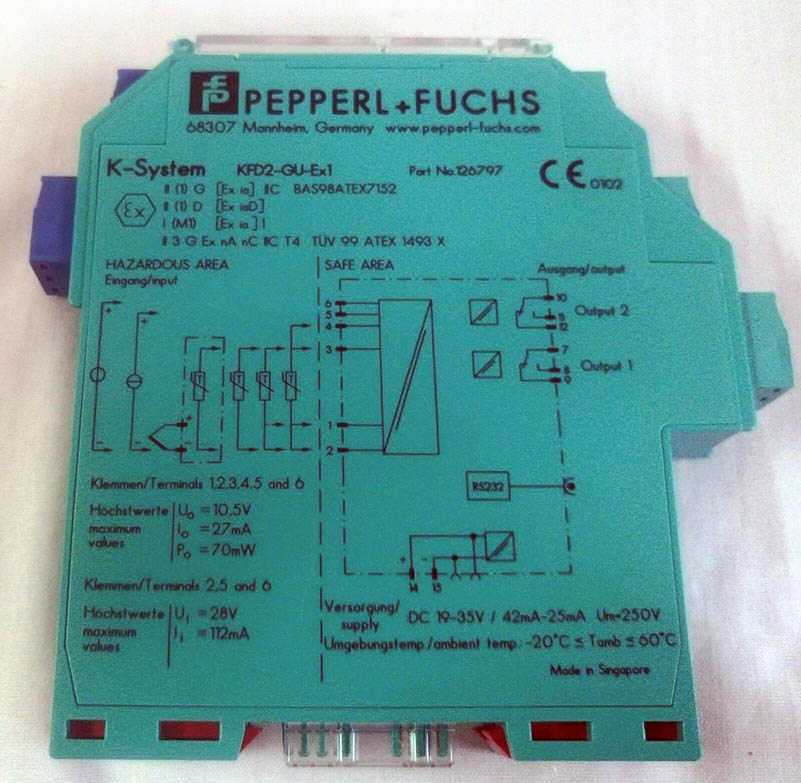 PEPPERL+FUCHS
68307 Mannheim, Germany www.pepperl-fuchs.com
K-System KFD2-GU-Ex1 Part No.126797 CE 0102
Ex
II (1) G [Ex ia] IIC BAS98ATEX7152
II (1) D [Ex iaD]
I (M1) [Ex ia] I
II 3 G Ex nA nC IIC T4 TÜV 99 ATEX 1493 X
HAZARDOUS AREA
Eingang/input
SAFE AREA
Ausgang/output
6
5
4
3
1
2
10
11
12
Output 2
7
8
9
Output 1
RS232
+ -
14 15
Klemmen/Terminals 1,2,3,4,5 and 6
Höchstwerte
maximum
values
Uo = 10,5V
Io = 27mA
Po = 70mW
Klemmen/Terminals 2,5 and 6
Höchstwerte
maximum
values
Ui = 28V
Ii = 112mA
Versorgung/
supply
DC 19-35V / 42mA-25mA Um=250V
Umgebungstemp./ambient temp.: -20°C ≤ Tamb ≤ 60°C
Made in Singapore